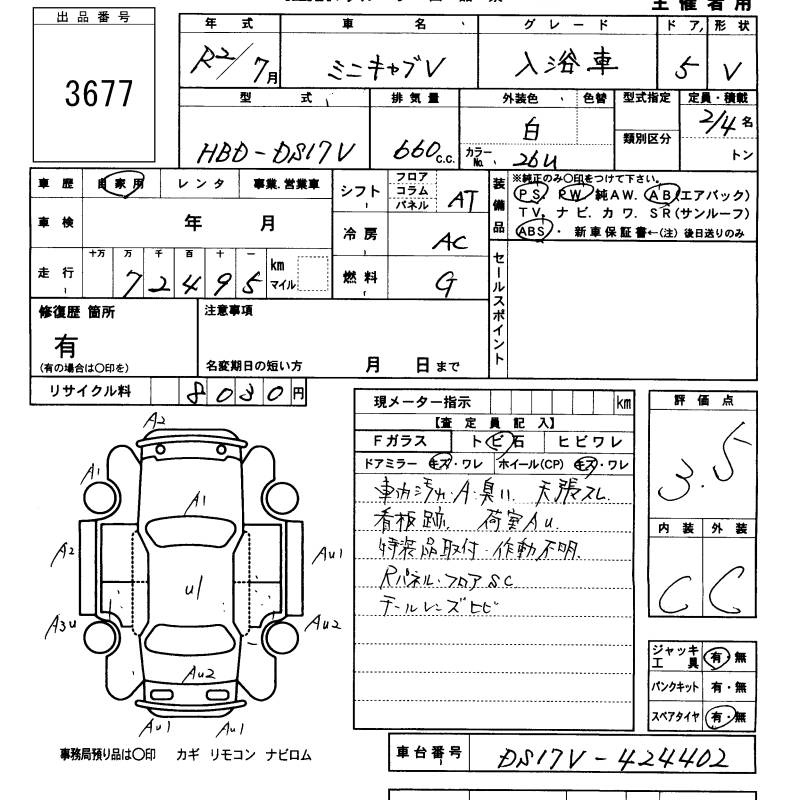 主催者用
出品番号
3677
年式 車名 グレード ドア 形状
R2/7月 ミニキャブV 入浴車 5 V
型式 排気量 外装色 色替 型式指定 定員・積載
HBD-DS17V 660c.c. 白 類別区分 2/4名
カラーNo. 26U トン
車歴 自家用 レンタ 事業.営業車
車検 年 月
走行 十万 万 千 百 十 一
72495 km マイル
シフト フロア コラム パネル AT
冷房 AC
燃料 G
装備品 ※純正のみ○印をつけて下さい。
PS. PW. 純AW. AB(エアバック)
TV. ナビ. カワ. SR(サンルーフ)
ABS・ 新車保証書←(注) 後日送りのみ
セールスポイント
修復歴 箇所 注意事項
有
(有の場合は○印を) 名変期日の短い方 月 日まで
リサイクル料 8030円
現メーター指示 km
【査定員記入】
Fガラス トビ石 ヒビワレ
ドアミラー キズ・ワレ ホイール(CP) キズ・ワレ
車内汚れ・A・臭い 天張スレ
看板跡 荷室AU
特装品取付・作動不明
Rパネル・フロアSC
テールレンズヒビ
評価点
3.5
内装 外装
C C
ジャッキ工具 有・無
パンクキット 有・無
スペアタイヤ 有・無
A2
A1
A1
A2
AU1
U1
A3U
AU2
AU2
AU1 AU1
事務局預り品は○印 カギ リモコン ナビロム
車台番号 DS17V-424402